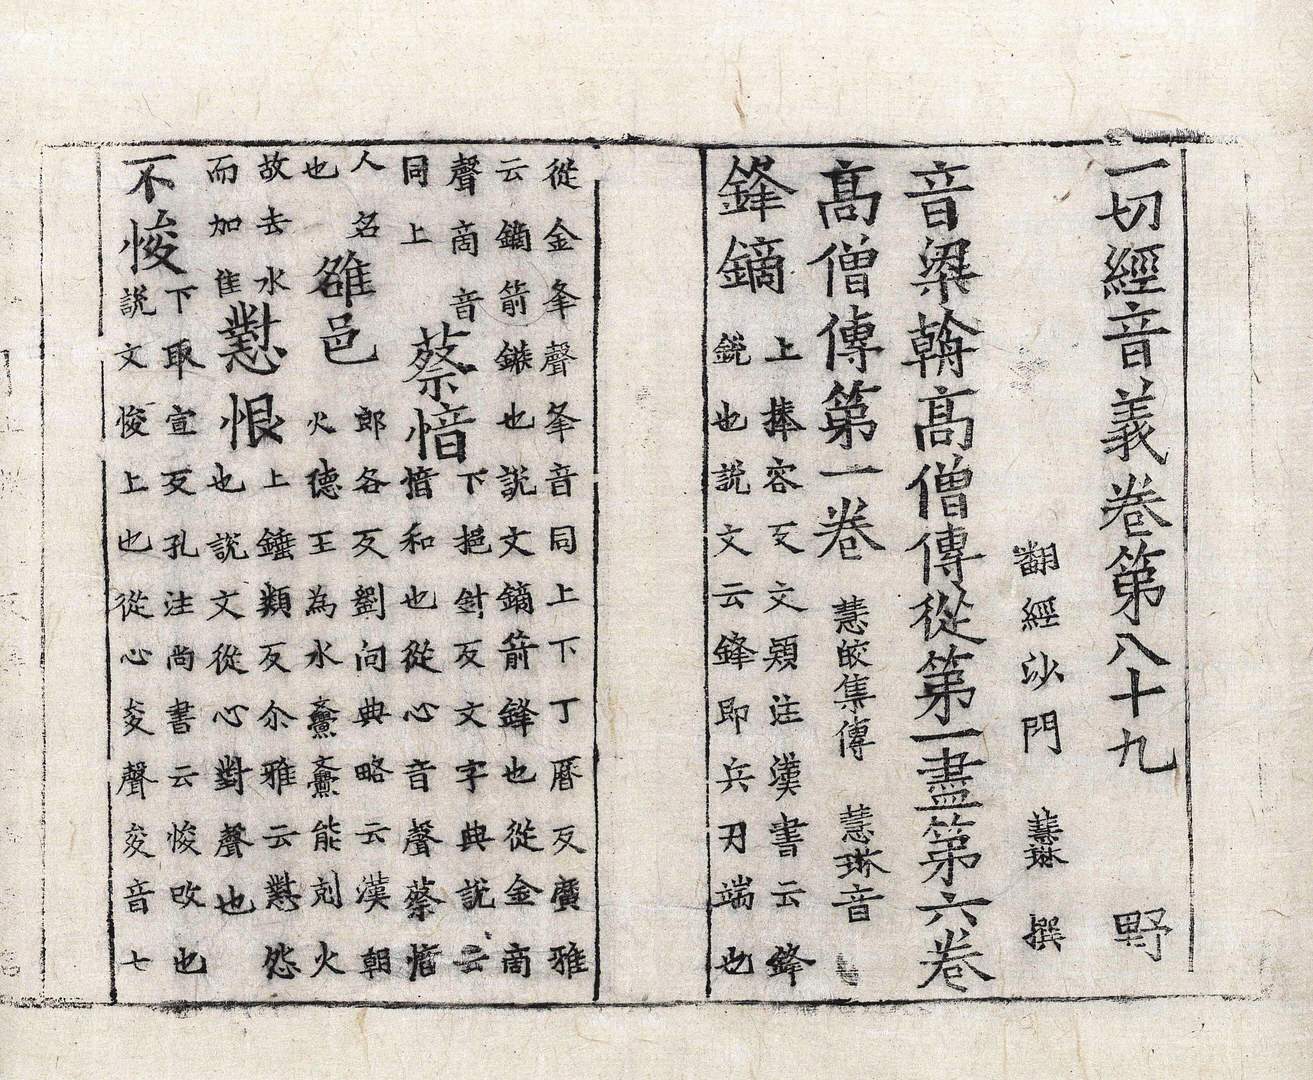 一切經音義卷第八十九 野
翻經沙門 慧琳 撰
音梁翰高僧傳從第一盡第六卷
髙僧傳第一卷 慧皎集傳 慧琳音
鋒鏑 上捧容反文穎注漢書云鋒
銳也說文云鋒即兵刃端也
從金夆聲夆音同上下丁曆反廣雅
云鏑箭鏃也說文鏑箭鋒也從金啇
聲啇音同上 蔡愔 下挹針反文字典說云
愔和也從心音聲蔡愔
人名也 雒邑 郎各反劉向典略云漢朝
火德王為水𤐨𤐨能剋火
故去水而加隹 懟恨 上錘類反尒雅云懟怨
也說文從心對聲也
不悛 下取宣反孔注尚書云悛改也
說文悛止也從心夋聲夋音七